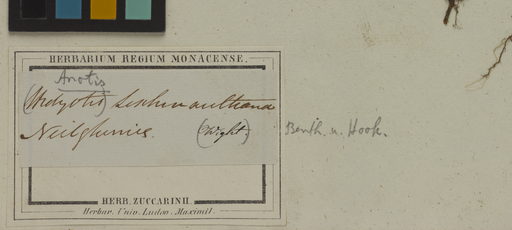 HERBARIUM REGIUM MONACENSE.
Anotis
(Hedyotis) Leschenaultiana
Neilgherries. (Wight.)
Benth. u. Hook.
HERB. ZUCCARINII.
Herbar. Univ. Ludov. Maximil.